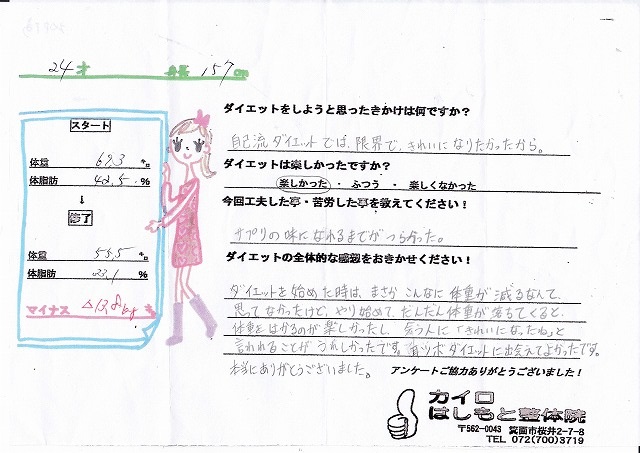 24才 身長 157cm
ダイエットをしようと思ったきかけは何ですか?
自己流ダイエットでは、限界で、きれいになりたかったから。
ダイエットは楽しかったですか?
楽しかった ・ ふつう ・ 楽しくなかった
今回工夫した亭・苦労した亭を教えてください!
サプリの味になれるまでがつらかった。
ダイエットの全体的な感想をおきかせください!
ダイエットを始めた時は、まさかこんなに体重が減るなんて、
思ってなかったけど、やり始めて、だんだん体重が落ちてくると、
体重をはかるのが楽しかったし、会う人に「きれいになったね」と
言われることがうれしかったです。耳ツボダイエットに出会えてよかったです。
本当にありがとうございました。
アンケートご協力ありがとうございました!
スタート
体重 69.3 kg
体脂肪 42.5 %
↓
終了
体重 55.5 kg
体脂肪 33.1 %
マイナス △13.8kg
カイロ
はしもと整体院
〒562-0043 箕面市桜井2-7-8
TEL 072(700)3719